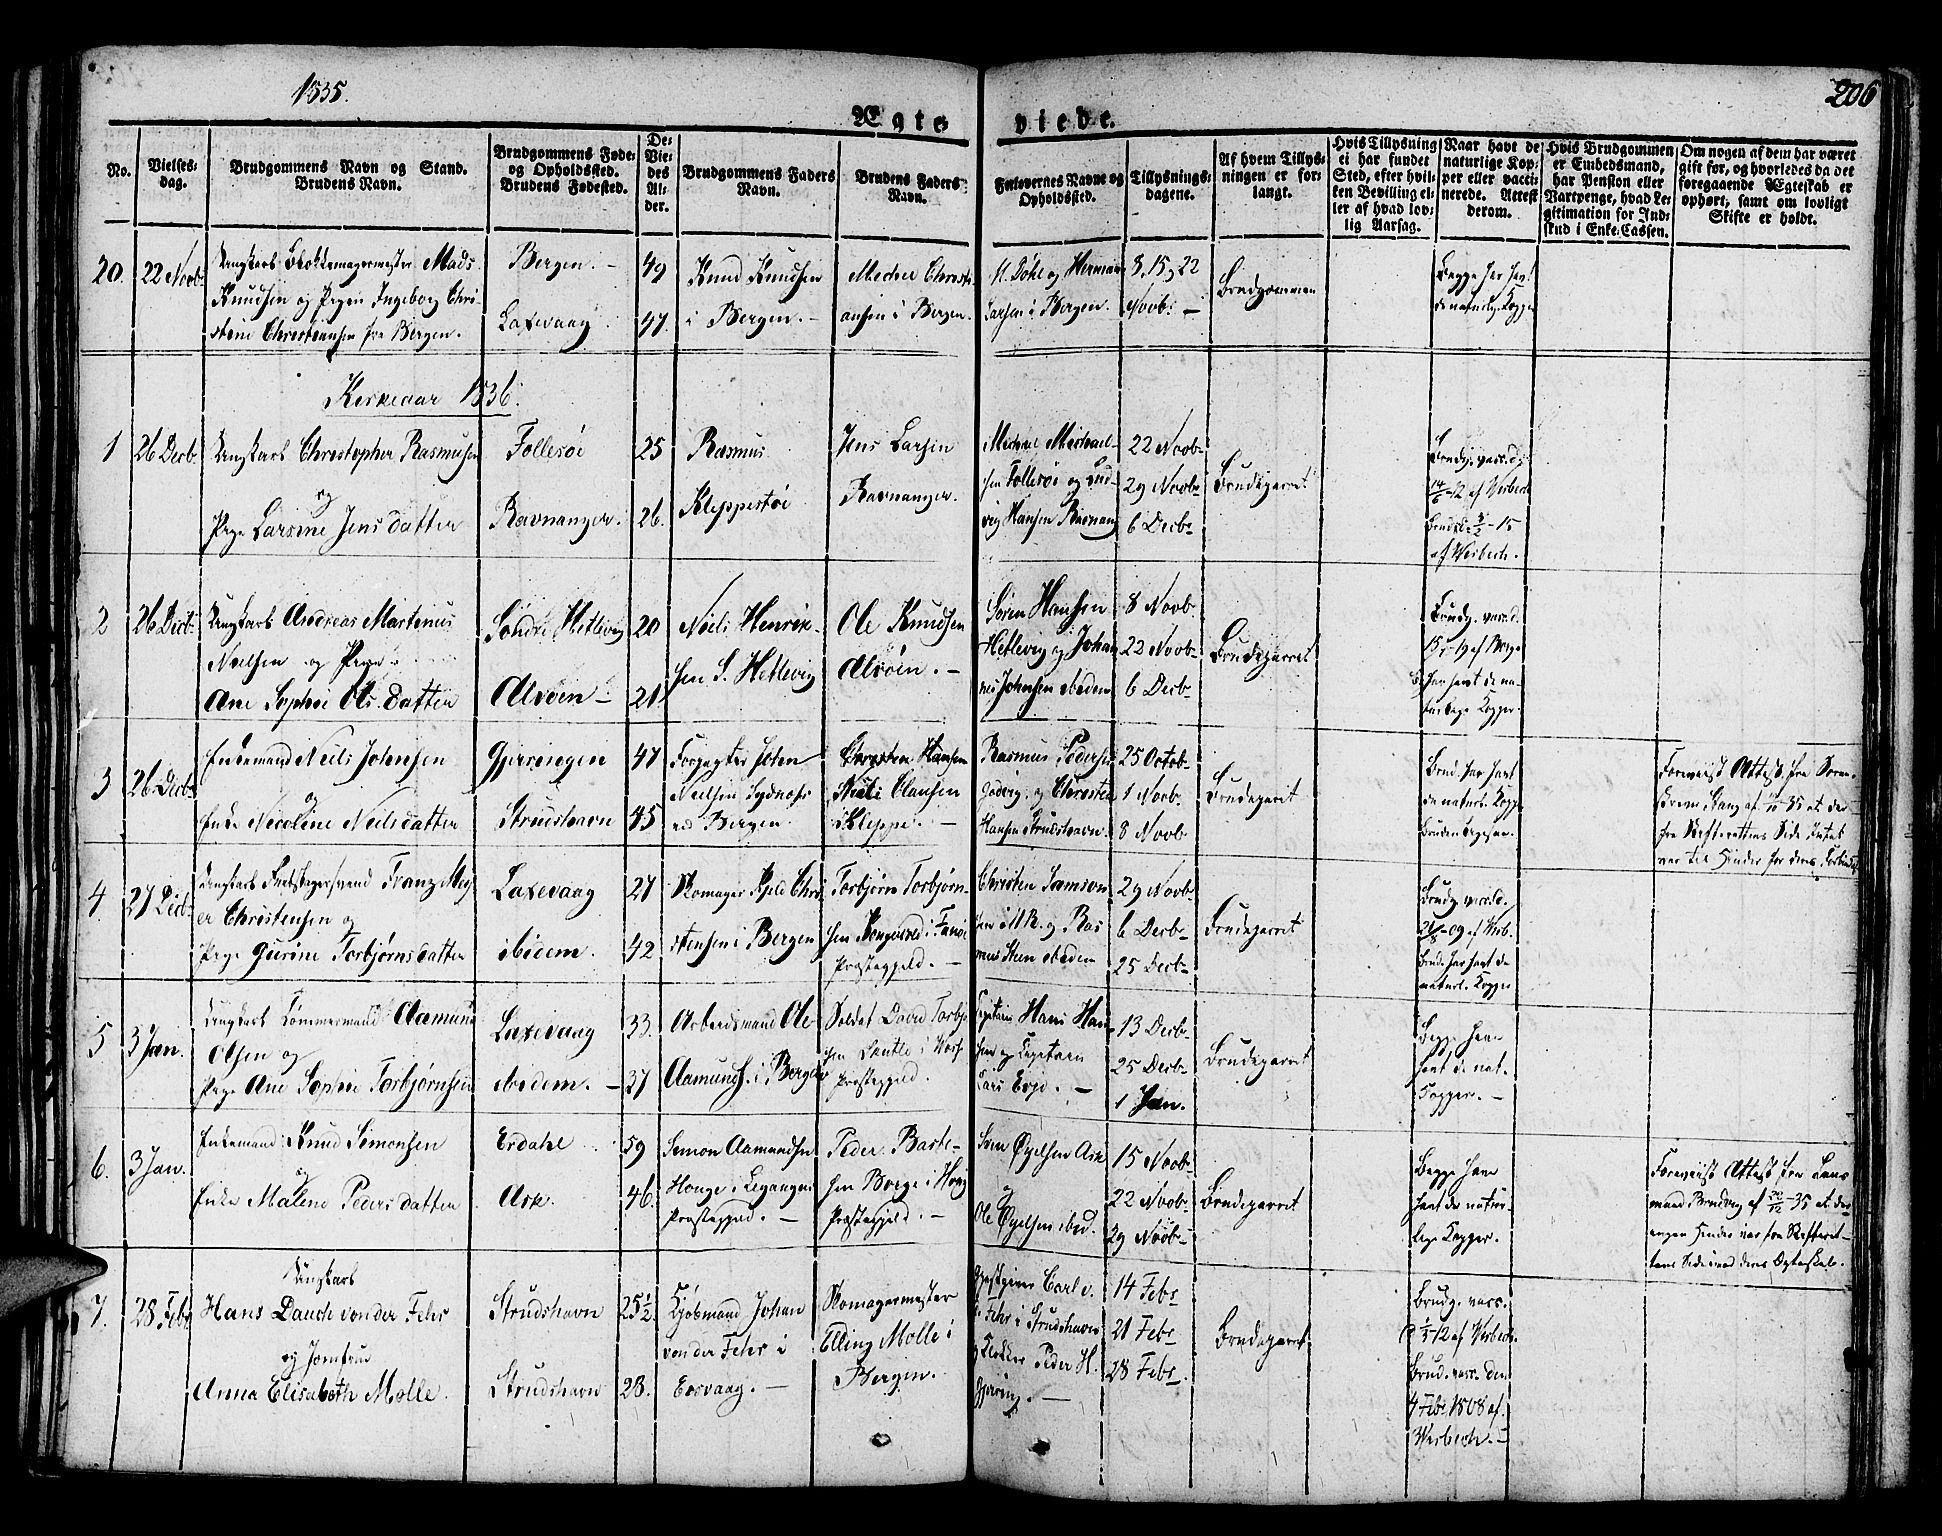 1835.
206
Ægte viede.
No.
Vielses-
dag.
Brudgommens Navn og Stand.
Brudens Navn.
Brudgommens Føde-
og Opholdssted.
Brudens Fødested.
De-
Vie-
des
Al-
der.
Brudgommens Faders
Navn.
Brudens Faders
Navn.
Forlovernes Navne og
Opholdssted.
Tillysnings-
dagene.
Af hvem Tillys-
ningen er for-
langt.
Hvis Tillysning
ei har fundet
Sted, efter hvil-
ken Bevilling el-
ler af hvad lov-
lig Aarsag.
Naar havt de
naturlige Kop-
per eller vacci-
nerede. Attest
derom.
Hvis Brudgommen
er Embedsmand,
har Pension eller
Vartpenge, hvad Le-
gitimation for Ind-
skud i Enke-Cassen.
Om nogen af dem har været
gift før, og hvorledes da det
foregaaende Ægteskab er
ophørt, samt om lovligt
Skifte er holdt.
20. 22 Novb.
Ungkarl Blokkemagermester Mads
Knudsen og Pigen Ingeborg Chri-
stine Christiansen fra Bergen.
Bergen. –
Laxevaag
49
47.
Knud Knudsen
i Bergen. –
Michel Christi-
ansen i Bergen.
M. Döhl og Herman
Larsen i Bergen.
8, 15, 22
Novb: –
Brudgommen
Begge har havt
de naturlig. Kopper
Kirkeaar 1836.
1 26 Decb.
Ungkarl Christopher Rasmusen
og
Pige Larsine Jensdatter
Follesøi
Ravnanger.
25
26.
Rasmus
Kleppestøi
Jens Larsen
Ravnanger.
Michael Michael-
sen Follesøi og Lud-
vig Hansen Ravnang
22 Novb-
29 Novb-
6 Decb-
Brudeparret
Brudg. vacc. d.
14/6-12 af Wisbech
Bruden 3/2-15
af Wesbech.
2 26 Decb-
Ungkarl Andreas Martinus
Neelsen og Pige
Ane Sophie Ols datter
Söndre Hetlevig
Alvöen –
20
21
Niels Henrik-
sen S. Hetlevig
Ole Knudsen
Alvöen. –
Sören Hansen
Hetlevig og Johan
nes Johnsen ibidem
8 Novb.
22 Novb-
6 Decb-
Brudeparret
Brudg. vacc. d.
af
har havt de na-
turlige Kopper.
3 26 Decb-
Enkemand Neils Johnsen
og
Enke Nicoline Neilsdatter
Gjerningen
Strudshavn
47
45
Forpagter John
Neilsen Sydnæss
ved Bergen.
Christen Hansen
Clausen
i Kleppe. –
Rasmus Pedersen
og Christen
Hansen Strudshavn.
25 Octob-
1 Novb.
8 Novb.
Brudeparret
Brud. har havt
de naturl. Kopper
Bruden ligesaa.
Foreviist Attest fra Soren-
skriver Stang af 35 at der
fra Skifterettens Side Intet
var til Hinder for deres Forbindelse
4. 27 Decb-
Ungkarl Franz Mey
er Christensen og
Pige Gurine Torbjørnsdatter
Laxevaag
ibidem.
27
42
Skomager Kjeld Chri
stensen i Bergen
Torbjørn Torbjørn-
sen i Fanöe
Præstegjeld. –
Christen Samson
sen og Ras
mus ibidem
29 Novb-
6 Decb-
25 Decb-
Brudeparret
Brudg. vacc. d.
26/8-09 af Wisb.
Brud. har havt de
naturl. Kopper
5 3 Jan.
Ungkarl Tömmermand Aamund
Olsen og
Pige Ane Sophie Torbjørnsen
Laxevaag
ibidem. –
33.
37
Arbeidsmand Ole
Aamunds. i Bergen
Soldat David Torbjø
sen i Vors
Præstegjeld.
Capitain Hans Han-
sen og Capitain
Lars –
13 Decb-
25 Decb-
1 Jan.
Brudeparret
Begge have
havt de nat.
Kopper. –
6. 3 Jan.
Enkemand Knud Simonsen
og
Enke Malene Pedersdatter
Erdahl
Ask
59
46.
Simon Aamundsen
Houge i Leganger
Præstegjeld. –
Peder Baste-
sen Borge i Houg
Præstegjeld. –
Sven Øyelsen Ask
og
Ole Øyelsen ibid.
15 Novb-
22 Novb-
29 Novb-
Brudeparret
Begge have
havt de natur
lige Kopper.
Foreviist Attest fra Lens
mand Brudvig af 20/12-35 at der
ingen Hinder var fra Skifteret-
tens Side mod deres Egteskab.
7. 28 Febr
Ungkarl
Hans Danch von der Fehr
og Jomfrue
Anna Elisabeth Mölle.
Strudshavn
Strudshavn
25½
28.
Kjöbmand Johan
von der Fehr i
Eosvaag. –
Skomagermester
Elling Mölle i
Bergen.
Gjestgiver Carl v.
d Fehr i Strudshavn
og Klokker Peder H.
Gjerning. –
14 Febr
21 Febr
28 Febr.
Brudeparret
Brudg. vacc.
12 af Wisbech.
Brud. vacc. den
4 Febr. 1808 af
Wisbech. –